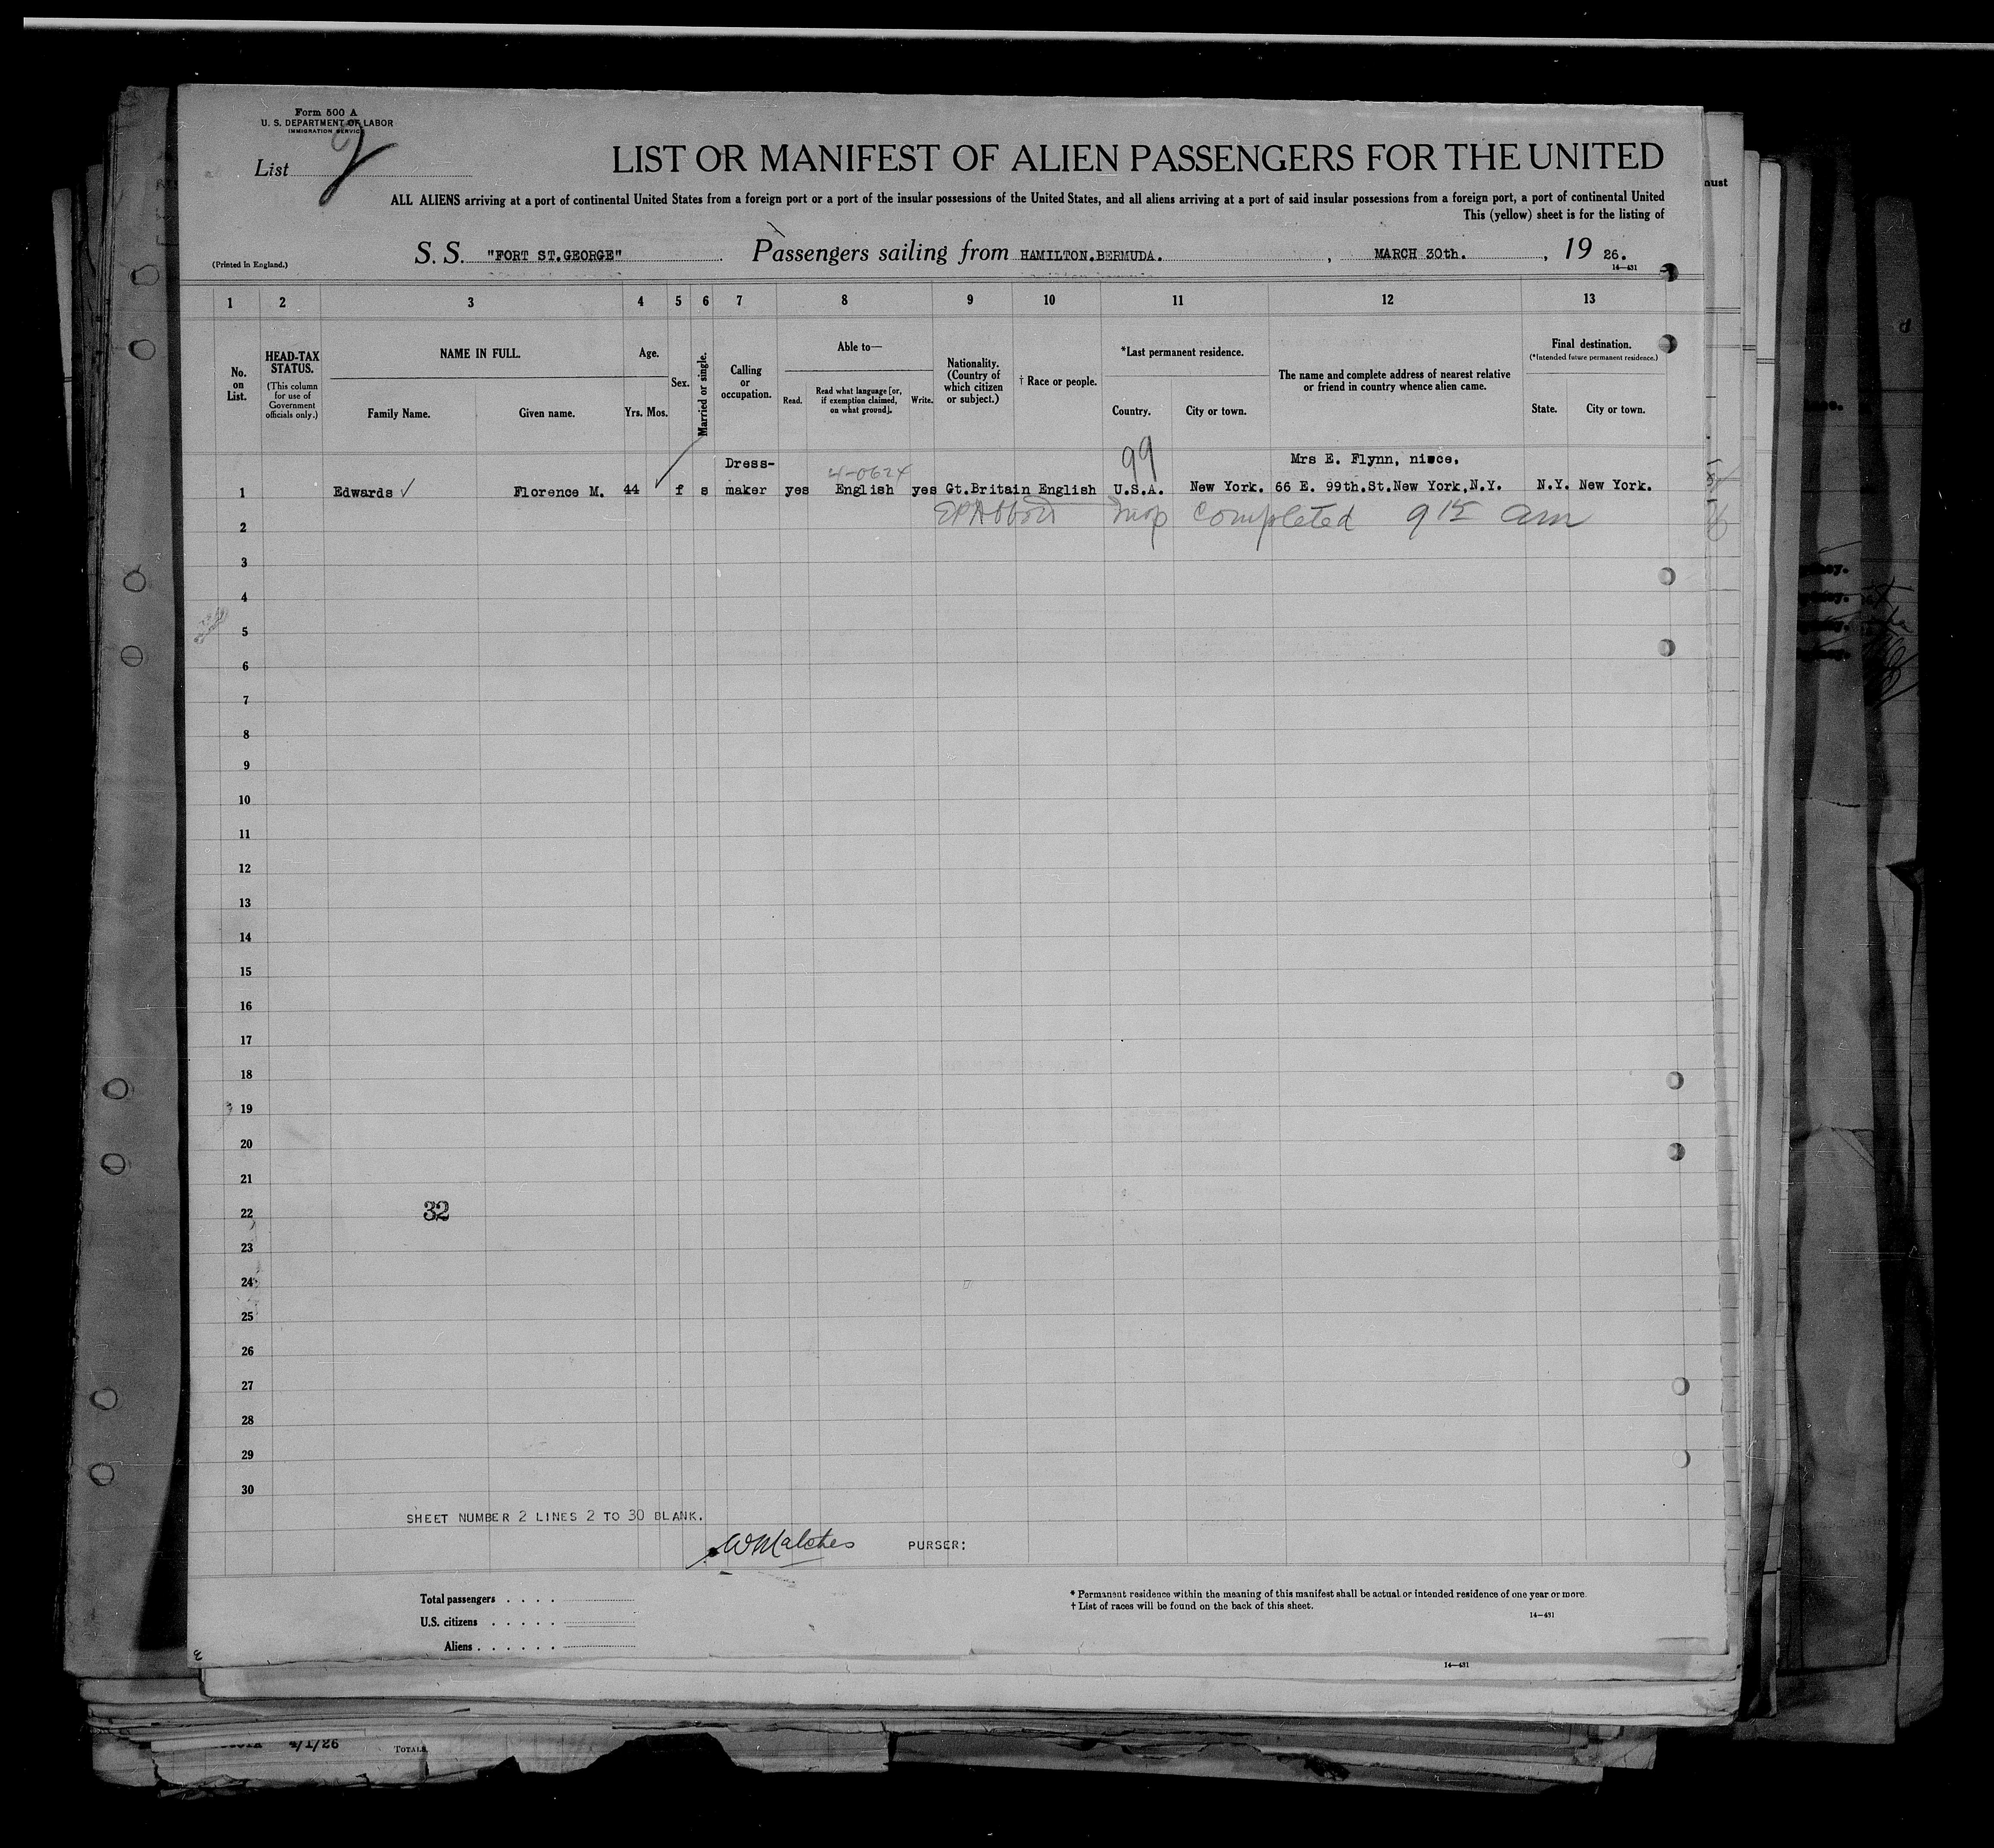 Form 500 A
U. S. DEPARTMENT OF LABOR
IMMIGRATION SERVICE
List 2
LIST OR MANIFEST OF ALIEN PASSENGERS FOR THE UNITED
ALL ALIENS arriving at a port of continental United States from a foreign port or a port of the insular possessions of the United States, and all aliens arriving at a port of said insular possessions from a foreign port, a port of continental United
This (yellow) sheet is for the listing of
(Printed in England.)
S. S. "FORT ST.GEORGE" Passengers sailing from HAMILTON.BERMUDA. , MARCH 30th. , 19 26.
14—431
1 2 3 4 5 6 7 8 9 10 11 12 13
No. on List.
HEAD-TAX STATUS.
(This column for use of Government officials only.)
NAME IN FULL.
Family Name. Given name.
Age.
Yrs. Mos.
Sex.
Married or single.
Calling or occupation.
Able to—
Read. Read what language [or, if exemption claimed, on what ground]. Write.
Nationality. (Country of which citizen or subject.)
† Race or people.
*Last permanent residence.
Country. City or town.
The name and complete address of nearest relative or friend in country whence alien came.
Final destination.
(*Intended future permanent residence.)
State. City or town.
99
Dress- Mrs E. Flynn, niece,
1 Edwards ✓ Florence M. 44 f s maker yes English yes Gt.Britain English U.S.A. New York. 66 E. 99th.St.New York,N.Y. N.Y. New York.
2 completed 9 15 am
3
4
5
6
7
8
9
10
11
12
13
14
15
16
17
18
19
20
21
22 32
23
24
25
26
27
28
29
30
SHEET NUMBER 2 LINES 2 TO 30 BLANK.
PURSER:
Total passengers . . . .
U.S. citizens . . . . .
Aliens . . . . . .
* Permanent residence within the meaning of this manifest shall be actual or intended residence of one year or more.
† List of races will be found on the back of this sheet.
14—431
14—431
4/1/26 TOTALS